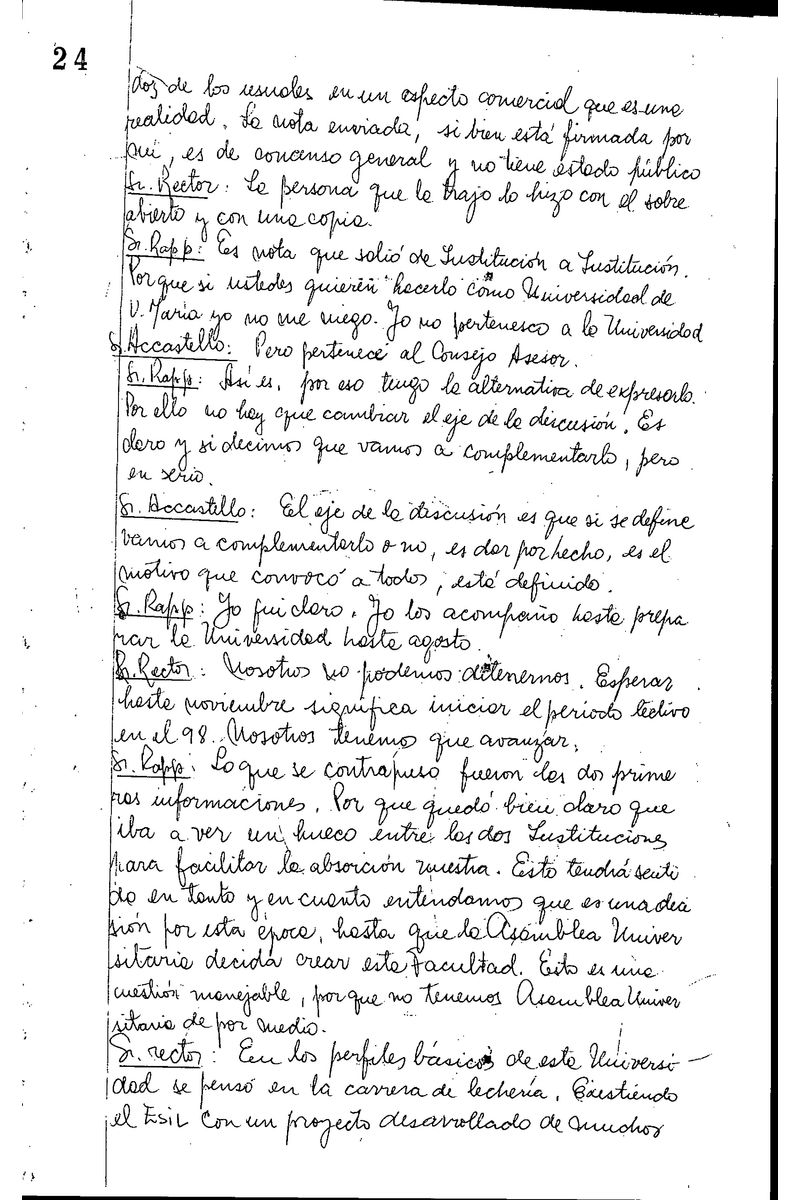 24
dos de los usuales en un aspecto comercial que es una
realidad. La nota enviada, si bien está firmada por
mi, es de concenso general y no tiene estado público
Sr. Rector: La persona que la trajo lo hizo con el sobre
abierto y con una copia.
Sr. Rapp: Es nota que salió de Institución a Institución.
Porque si ustedes quieren hacerlo como Universidad de
V. María yo no me niego. Yo no pertenesco a la Universidad
Sr. Accastello: Pero pertenece al Consejo Asesor.
Sr. Rapp: Así es, por eso tengo la alternativa de expresarlo.
Por ello no hay que cambiar el eje de la discusión. Es
claro y si decimos que vamos a complementarlo, pero
en serio.
Sr. Accastello: El eje de la discusión es que si se define
vamos a complementarlo o no, es dar por hecho, es el
motivo que convocó a todos, está definido.
Sr. Rapp: Yo fui claro. Yo los acompaño hasta prepa
rar la Universidad hasta agosto.
Sr. Rector: Nosotros no podemos detenernos. Esperar
hasta noviembre significa iniciar el periodo lectivo
en el 98. Nosotros tenemos que avanzar.
Sr. Rapp: Lo que se contrapuso fueron las dos prime
ras informaciones. Por que quedó bien claro que
iba a ver un hueco entre las dos Instituciones
para facilitar la absorción nuestra. Esto tendrá senti
do en tanto y en cuanto entendamos que es una deci
sión por esta época, hasta que la Asamblea Univer
sitaria decida crear esta Facultad. Esto es una
cuestión manejable, porque no tenemos Asamblea Univer
sitaria de por medio.
Sr. rector: En los perfiles básicos de esta Universi
dad se pensó en la carrera de lechería. Existiendo
el ESIL con un proyecto desarrollado de muchos